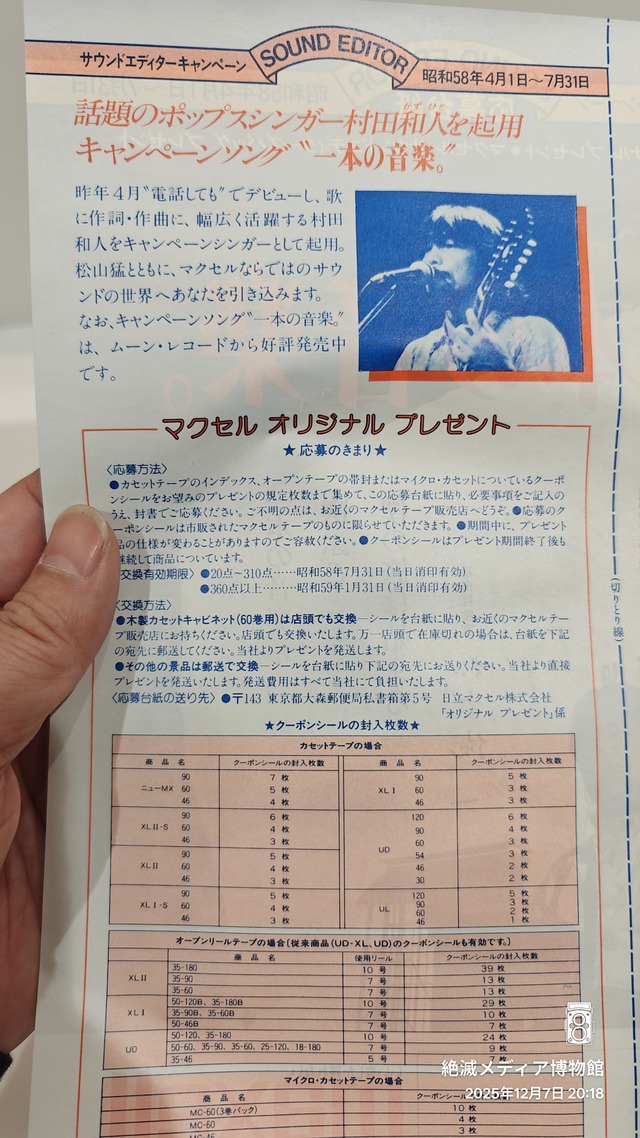 サウンドエディターキャンペーン
SOUND EDITOR
昭和58年4月1日〜7月31日
話題のポップスシンガー村田和人を起用
かず ひと
キャンペーンソング〝一本の音楽〟
昨年4月〝電話しても〟でデビューし、歌
に作詞・作曲に、幅広く活躍する村田
和人をキャンペーンシンガーとして起用。
松山猛とともに、マクセルならではのサウ
ンドの世界へあなたを引き込みます。
なお、キャンペーンソング〝一本の音楽〟
は、ムーン・レコードから好評発売中
です。
マクセル オリジナル プレゼント
★応募のきまり★
〈応募方法〉
●カセットテープのインデックス、オープンテープの帯封またはマイクロ・カセットについているクーポ
ンシールをお望みのプレゼントの規定枚数まで集めて、この応募台紙に貼り、必要事項をご記入の
うえ、封書でご応募ください。ご不明の点は、お近くのマクセルテープ販売店へどうぞ。●応募のク
ーポンシールは市販されたマクセルテープのものに限らせていただきます。●期間中に、プレゼント
品の仕様が変わることがありますのでご容赦ください。●クーポンシールはプレゼント期間終了後も
継続して商品についています。
交換有効期限〉●20点〜310点……昭和58年7月31日(当日消印有効)
●360点以上………昭和59年1月31日(当日消印有効)
〈交換方法〉
●木製カセットキャビネット(60巻用)は店頭でも交換―シールを台紙に貼り、お近くのマクセルテー
プ販売店にお持ちください。店頭でも交換いたします。万一店頭で在庫切れの場合は、台紙を下記
の宛先に郵送してください。当社よりプレゼントを発送します。
●その他の景品は郵送で交換―シールを台紙に貼り下記の宛先にお送りください。当社より直接
プレゼントを発送いたします。発送費用はすべて当社にて負担いたします。
〈応募台紙の送り先〉●〒143 東京都大森郵便局私書箱第5号 日立マクセル株式会社
「オリジナル プレゼント」係
★クーポンシールの封入枚数★
カセットテープの場合
商品名 クーポンシールの封入枚数 商品名 クーポンシールの封入枚数
ニューMX 90 7枚
60 5枚
46 4枚
XLII-S 90 6枚
60 4枚
46 3枚
XLII 90 5枚
60 4枚
46 3枚
XLI-S 90 5枚
60 4枚
46 3枚
XLI 90 5枚
60 3枚
46 3枚
UD 120 6枚
90 4枚
60 3枚
54 3枚
46 2枚
30 2枚
UL 120 5枚
90 3枚
60 2枚
46 1枚
オープンリールテープの場合〔従来商品(UD-XL、UD)のクーポンシールも有効です。〕
商品名 使用リール クーポンシールの封入枚数
XLII 35-180 10号 39枚
35-90 7号 13枚
35-60 7号 13枚
XLI 50-120B、35-180B 10号 29枚
35-90B、35-60B 7号 10枚
50-46B 7号 7枚
UD 50-120、35-180 10号 24枚
50-60、35-90、35-60、25-120、18-180 7号 9枚
35-46 5号
マイクロ・カセットテープの場合
商品名 クーポンシールの封入枚数
MC-60(3巻パック) 10枚
MC-60 4枚
MC-46 3枚
(切りとり線)
絶滅メディア博物館
2025年12月7日 20:18